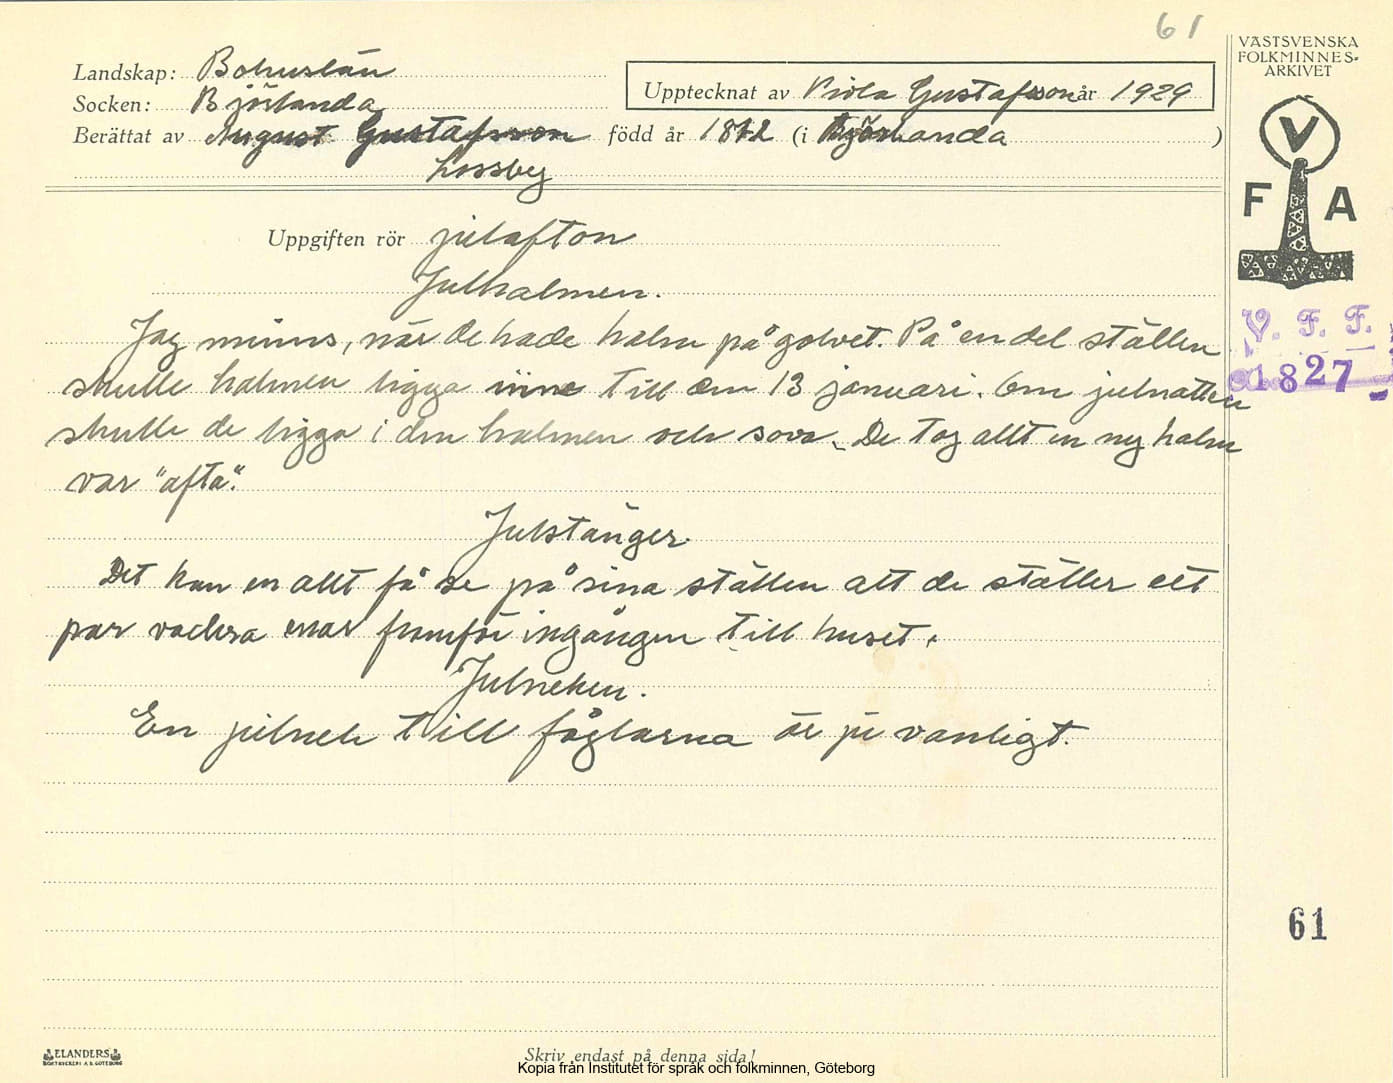 61
VÄSTSVENSKA
FOLKMINNES-
ARKIVET
Landskap: Bohuslän
Socken: Björlanda
Upptecknat av Viola Gustafsson år 1929
Berättat av August Gustafsson född år 1872 (i Björlanda )
Lossby
V
F A
Uppgiften rör julafton
Julhalmen.
V. F. F.
1827
Jag minns, när de hade halm på golvet. På en del ställen
skulle halmen ligga inne till den 13 januari. Om julnatten
skulle de ligga i den halmen och sova. De tog allt en ny halm
var "afta".
Julstänger.
Det kan en allt få se på sina ställen att de ställer ett
par vackra enar framför ingången till huset.
Julneken.
En julnek till fåglarna är ju vanligt.
61
ELANDERS
BOKTRYCKERI A. B. GÖTEBORG
Skriv endast på denna sida!
Kopia från Institutet för språk och folkminnen, Göteborg